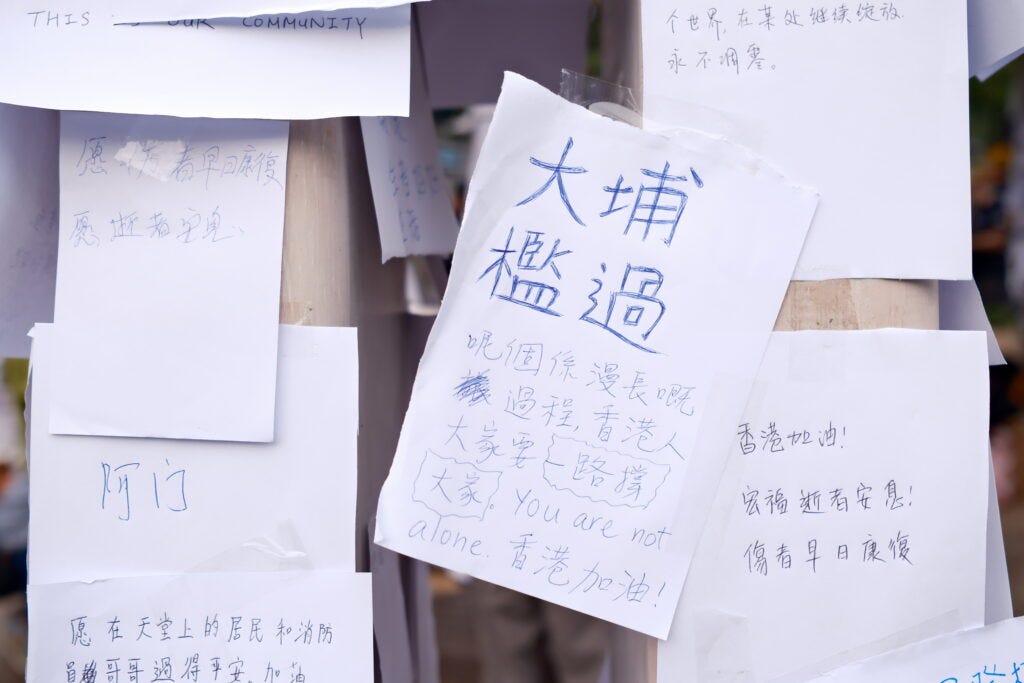 THIS IS OUR COMMUNITY
个世界,在某处继续绽放.
永不凋零。
愿伤者早日康復
愿逝者安息、
大埔
檻過
呢個係漫長嘅
過程,香港人
大家要一路撐
大家。You are not
alone. 香港加油!
阿门
香港加油!
宏福逝者安息!
傷者早日康復
愿在天堂上的居民和消防
員哥哥過得平安。加油